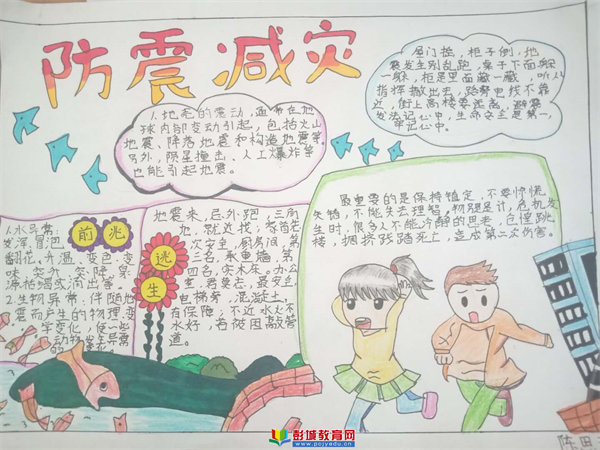 防震减灾
1.地起的震动,通常在地
球内部变动引起,包括火山
地震、陷落地震和构造地震等
另外,陨星撞击、人工爆炸等
也能引起地震。
房门摇,柜子倒,地
震发生别乱跑,桌子下面躲
一躲,柜是里面藏一藏,听从
指挥撤出去,路旁电线不靠
近,街上高楼要远离,避震
方法记心中,生命安全是第一,
牢记心中。
前兆
1.水异常:
发浑、冒泡
翻花、升温、变色、变
味、突升、突降、泉
源枯竭或涌出等。
2.生物异常,伴随地
震而产生的物理变
学变化,使一些
动物发生异常
的
逃生
地震来,忌外跑,三角
地,就近找;
次安全,厨房间,第
三名,承重墙,第
四名,实木床。办公
室,君莫去,最安全,
电梯旁,混凝土,
有保障;不近水火不
水好,若被困敲管
道。
最重要的是保持镇定,不要惊慌
失错,不能失去理智,物理是计,危机发
生时,很多人不能冷静的思考,仓惶跳
楼,拥挤践踏死亡,造成第二次伤害。
彭城教育网
www.pcjyedu.cn
陈田